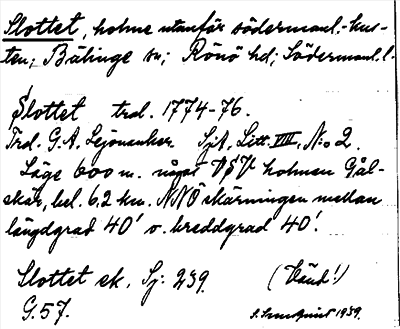 Slottet, holme utanför södermanl.-kus-
ten; Bälinge sn; Rönö hd; Södermanl. l.
Slottet trol. 1774-76.
Trol. G.A. Lejonanker. SjA, Litt. VIII, N:o 2.
Läge 600 m. något VSV holmen Gål-
skär, bel. 6,2 km. NNÖ skärningen mellan
längdgrad 40' o. breddgrad 40'.
Slottet sk. Sj: 239. (Vänd!)
G.57. 1939.